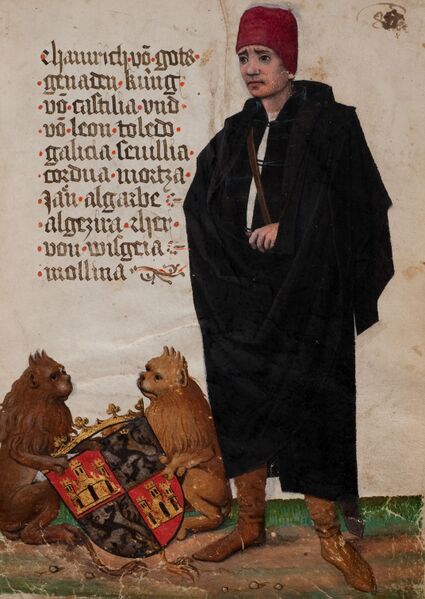 chainrich · võ · gots ·
genaden · küng ·
võ · castilia · vnd ·
võ · leon · toledo ·
galicia · seuillia ·
cordua · mortza ·
Jaň · algarbe ·
algezira · her ·
von · wisgeia ·
mollina